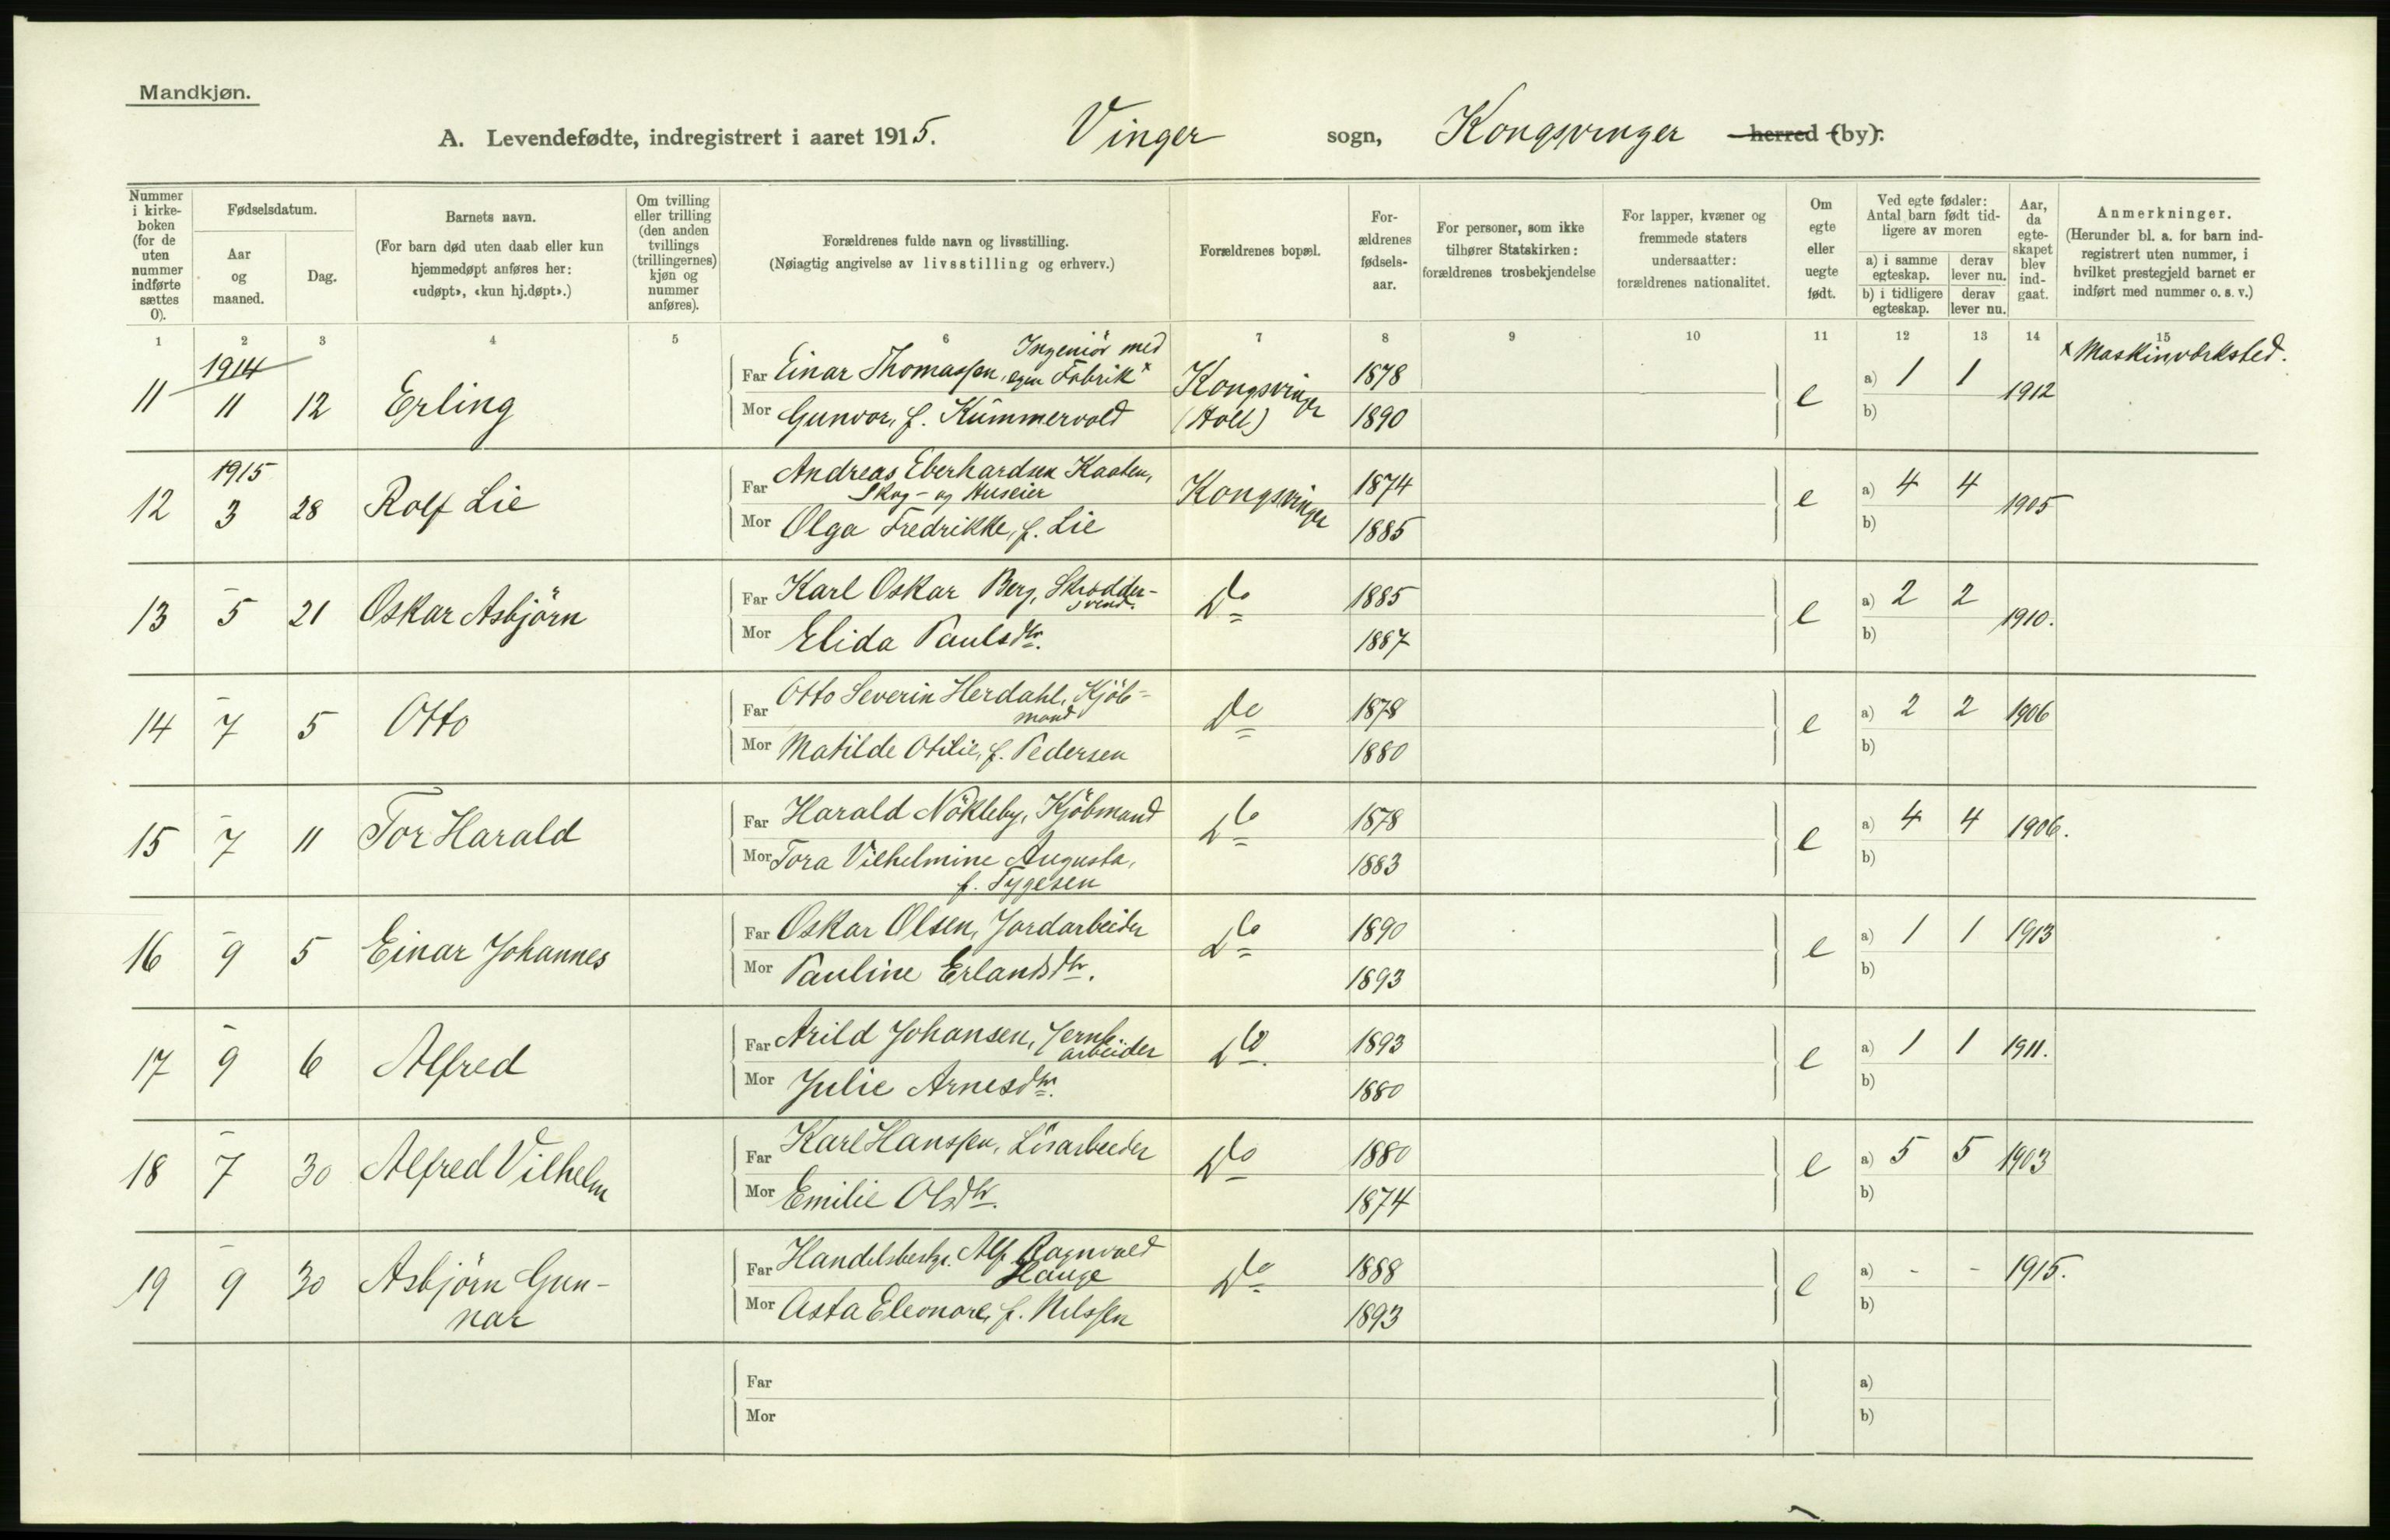 Mandkjøn.
A. Levendefødte, indregistrert i aaret 1915. Vinger sogn, Kongsvinger herred (by).
Nummer i kirke-boken (for de uten nummer indførte sættes 0).
Fødselsdatum.
Aar og maaned.
Dag.
Barnets navn.
(For barn død uten daab eller kun hjemmedøpt anføres her: «udøpt», «kun hj.døpt».)
Om tvilling eller trilling (den anden tvillings (trillingernes) kjøn og nummer anføres).
Forældrenes fulde navn og livsstilling.
(Nøiagtig angivelse av livsstilling og erhverv.)
Forældrenes bopæl.
For-ældrenes fødsels-aar.
For personer, som ikke tilhører Statskirken: forældrenes trosbekjendelse
For lapper, kvæner og fremmede staters undersaatter: forældrenes nationalitet.
Om egte eller uegte født.
Ved egte fødsler: Antal barn født tid-ligere av moren
a) i samme egteskap.
derav lever nu.
b) i tidligere egteskap.
derav lever nu.
Aar, da egte-skapet blev ind-gaat.
Anmerkninger.
(Herunder bl. a. for barn ind-registrert uten nummer, i hvilket prestegjeld barnet er indført med nummer o. s. v.)
1 2 3 4 5 6 7 8 9 10 11 12 13 14 15
1914
11 11 12 Erling
Far Einar Thomassen, Ingeniör med egen Fabrik x
Mor Gunvor, f. Kummervold
Kongsvinger (Holt) 1878 1890 e a) 1 1 b) 1912 x Maskinværksted.
1915
12 3 28 Rolf Lie
Far Andreas Eberhardsen Kaaten, Skog- og Huseier
Mor Olga Fredrikke, f. Lie
Kongsvinger 1874 1885 e a) 4 4 b) 1905
13 - 5 21 Oskar Asbjörn
Far Karl Oskar Berg, Skrædder-svend.
Mor Elida Paulsdtr.
Do 1885 1887 e a) 2 2 b) 1910.
14 - 7 5 Otto
Far Otto Severin Herdahl, Kjöb-mand
Mor Matilde Otilie, f. Pedersen
Do 1878 1880 e a) 2 2 b) 1906
15 - 7 11 Tor Harald
Far Harald Nökleby, Kjöbmand
Mor Tora Vilhelmine Augusta, f. Tygesen
Do 1878 1883 e a) 4 4 b) 1906.
16 - 9 5 Einar Johannes
Far Oskar Olsen, Jordarbeider
Mor Pauline Erlandsdtr.
Do 1890 1893 e a) 1 1 b) 1913
17 - 9 6 Alfred
Far Arild Johansen, Jernb.arbeider
Mor Julie Arnesdtr.
Do. 1893 1880 e a) 1 1 b) 1911.
18 - 7 30 Alfred Vilhelm
Far Karl Hanssen, Lösarbeider
Mor Emilie Olsdtr.
Do 1880 1874 e a) 5 5 b) 1903
19 - 9 30 Asbjörn Gun-nar
Far Handelsbestyr. Alf Ragnvald Hauge
Mor Asta Eleonore, f. Nilssen
Do 1888 1893 e a) - - b) 1915.
Far
Mor
a)
b)